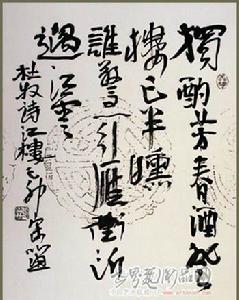 獨酌芳春酒登
樓已半醺
誰驚一行雁衝斷
過江雲
杜牧诗江樓